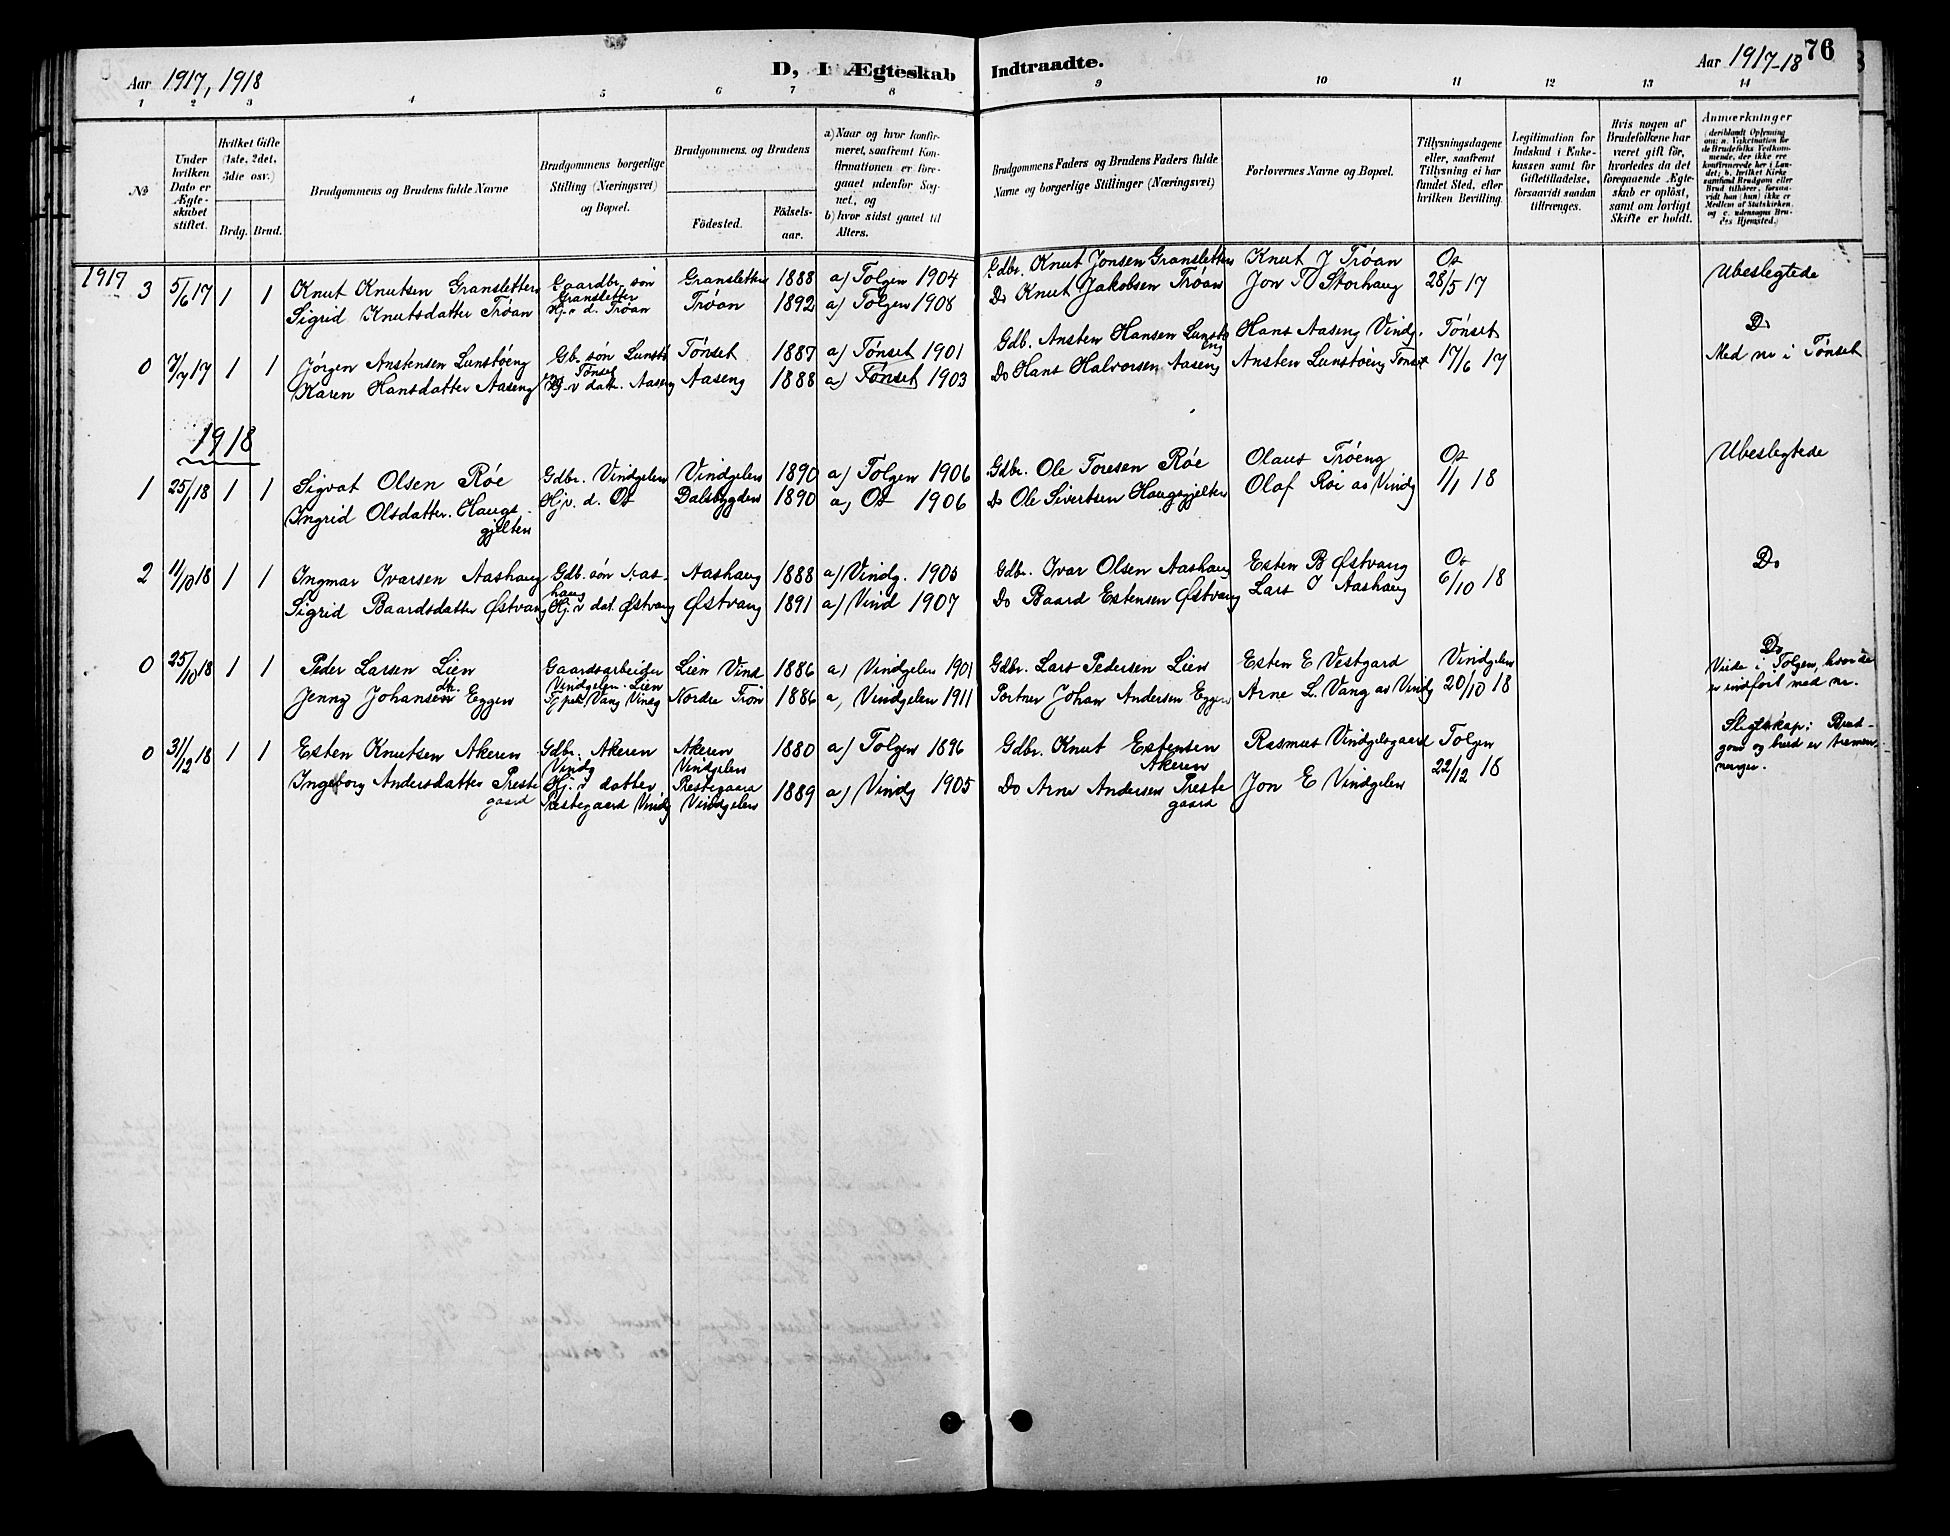 Aar 1917, 1918
D, I Ægteskab
Indtraadte.
Aar 1917-18
76
1 2 3 4 5 6 7 8 9 10 11 12 13 14
No
Under hvilken Dato er Ægteskabet stiftet.
Hvilket Gifte (1ste, 2det, 3die osv.)
Brdg. Brud.
Brudgommens og Brudens fulde Navne
Brudgommens borgerlige Stilling (Næringsvei) og Bopæl.
Brudgommens og Brudens
Födested.
Födselsaar.
a) Naar og hvor konfirmeret, saafremt Konfirmationen er foregaaet udenfor Sognet, og
b) hvor sidst gaaet til Alters.
Brudgommens Faders og Brudens Faders fulde Navne og borgerlige Stillinger (Næringsvei)
Forlovernes Navne og Bopæl.
Tillysningsdagene eller, saafremt Tillysning ei har fundet Sted, efter hvilken Bevilling.
Legitimation for Indskud i Enkekassen samt for Giftetilladelse, forsaavidt saadan tiltrænges.
Hvis nogen af Brudefolkene har været gift før, hvorledes da det foregaaende Ægteskab er opløst, samt om lovligt Skifte er holdt.
Anmærkninger
1917
3 5/6 17 1 1 Knut Knutsen Gransletten Gaardbr. søn Gransletten Gransletten 1888 a) Tolgen 1904 Gdbr. Knut Jonsen Gransletten Knut J Trøan Os 28/5 17 Ubeslegtede
Sigrid Knutsdatter Trøan Hj. v d. Trøan Trøan 1892 a) Tolgen 1908 Do Knut Jakobsen Trøan Jon T Storhaug
0 7/7 17 1 1 Jørgen Anstensen Lunstöeng Gb. søn Lunstöeng Tönset Tønset 1887 a) Tønset 1901 Gdb. Ansten Hansen Lunstöeng Hans Aaseng Vindg. Tønset 17/6 17 Do
Karen Hansdatter Aaseng Hj. v datt. Aaseng Aaseng 1888 a) Tønset 1903 Do Hans Halvorsen Aaseng Ansten Lunstöeng Tønset Med nr i Tønset
1918
1 25/1 18 1 1 Sigvat Olsen Røe Gdbr. Vindgelen Vindgelen 1890 a) Tolgen 1906 Gdbr. Ole Toresen Røe Olaus Trøeng Os 1/1 18 Ubeslegtede
Ingrid Olsdatter Haugsgjelten Hj. v. d. Os Dalsbygden 1890 a) Os 1906 Do Ole Sivertsen Haugsgjelten Olaf Røe as Vindg
2 11/10 18 1 1 Ingmar Ivarsen Aashaug Gdb. søn Aashaug Aashaug 1888 a) Vindg. 1905 Gdbr. Ivar Olsen Aashaug Esten B Østvang Os 6/10 18 Do
Sigrid Baardsdatter Østvang Hj. v dat. Østvang Østvang 1891 a) Vind 1907 Do Baard Estensen Østvang Lars I Aashaug
0 25/10 18 1 1 Peder Larsen Lien Gaardsarbeider Vindgelen Lien Lien Vind 1886 a) Vindgelen 1901 Gdbr. Lars Pedersen Lien Esten E Vestgard Vindgelen 20/10 18 Do
Jenny Johansen dtr. Eggen Tj. pik. Vang Vindg Nordre Trøn 1886 a) Vindgelen 1911 Portner Johan Andersen Eggen Arne L. Vang as Vindg Viede i Tolgen, hvor de er indført med nr.
0 31/12 18 1 1 Esten Knutsen Akeren Gdbr. Akeren Vindg Akeren Vindgelen 1880 a) Tolgen 1896 Gdbr. Knut Estensen Akeren Rasmus Vindgelsgaard Tolgen 22/12 18 Slegtskap: Brudgom og brud er tremenninger.
Ingeborg Andersdatter Prestegaard Hj. v datter Prestegaard Vindg Prestegaard Vindgelen 1889 a) Vindg 1905 Do Arne Andersen Prestegaard Jon E Vindgelen